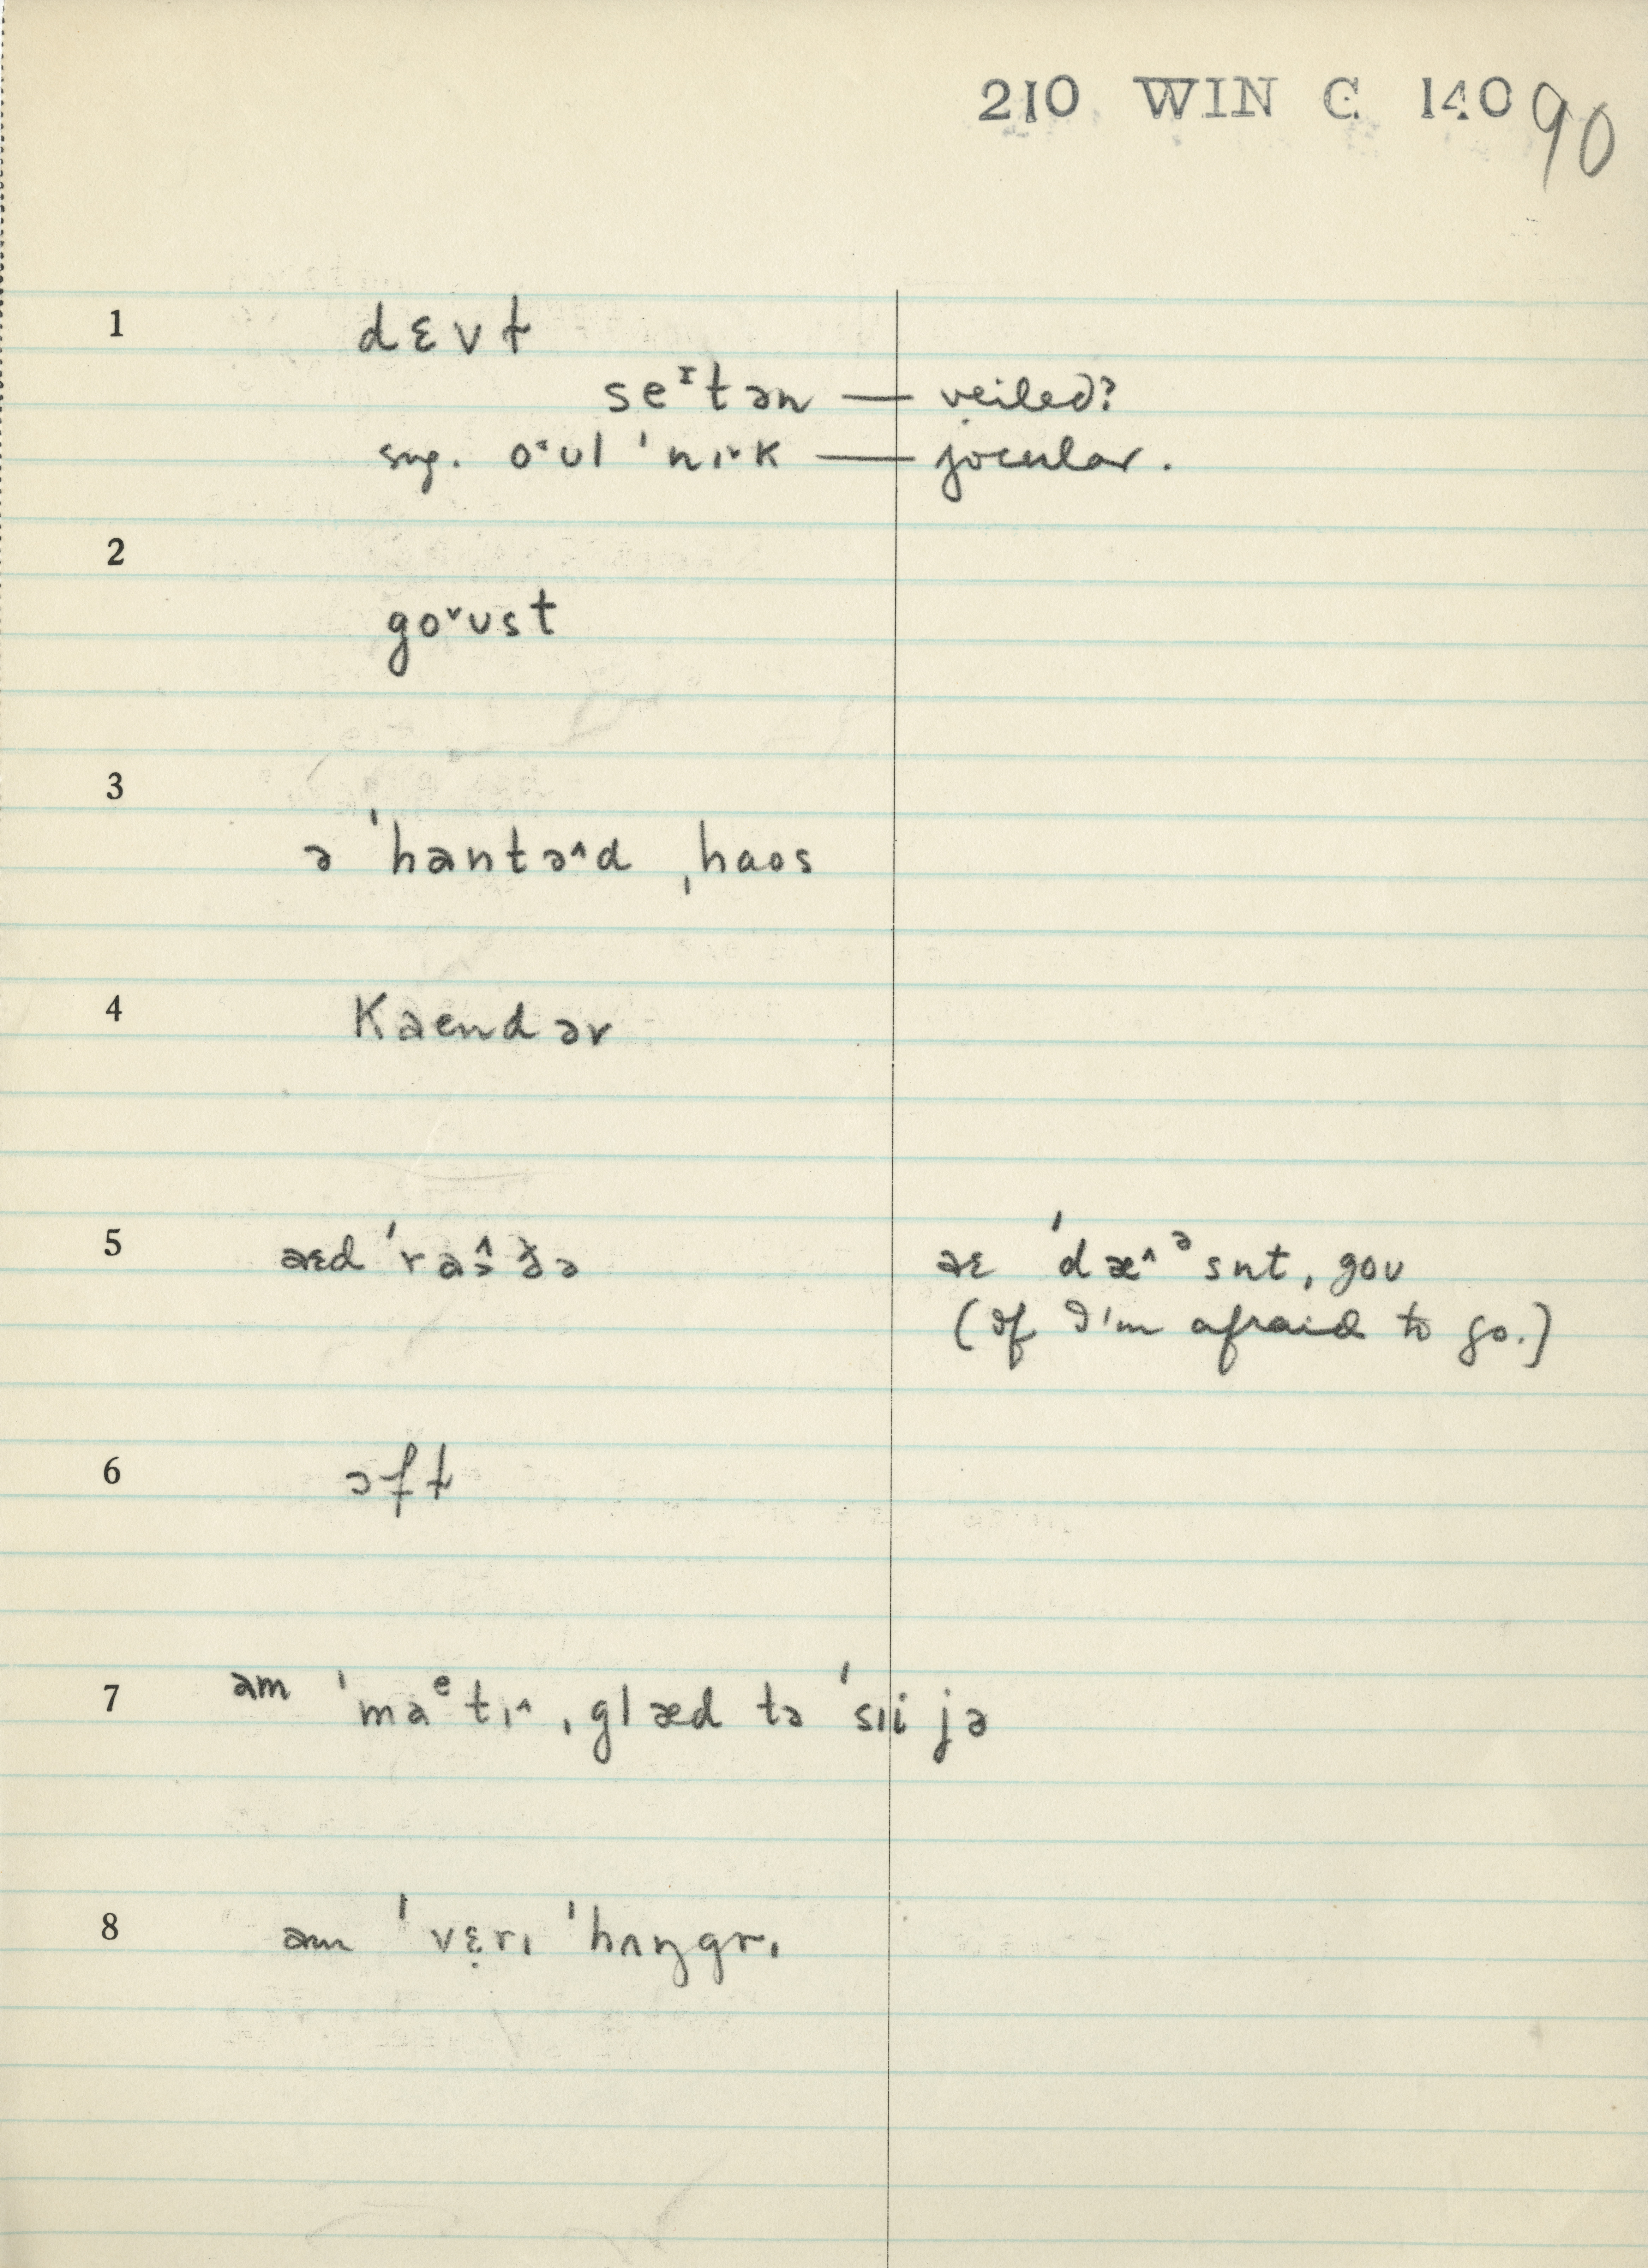 210 WIN C 140 90
1 dɛvɫ
seᶦtən — veiled?
sug. o˞ʊl ˈnɪ˞k — jocular.
2
go˅ʊst
3
ə ˈhantə^d ˌhaos
4 Kaendər
5 aɛd ˈraɔ̂ðə aɛ ˈdæ^ᵊsnt, goʊ
(If I'm afraid to go.)
6 ɔfɫ
7 am ˈmaᵉtɪ^ ˌglæd tə ˈsɪi jə
8 am ˈvɛ̣rɪ ˈhʌŋgrɪ